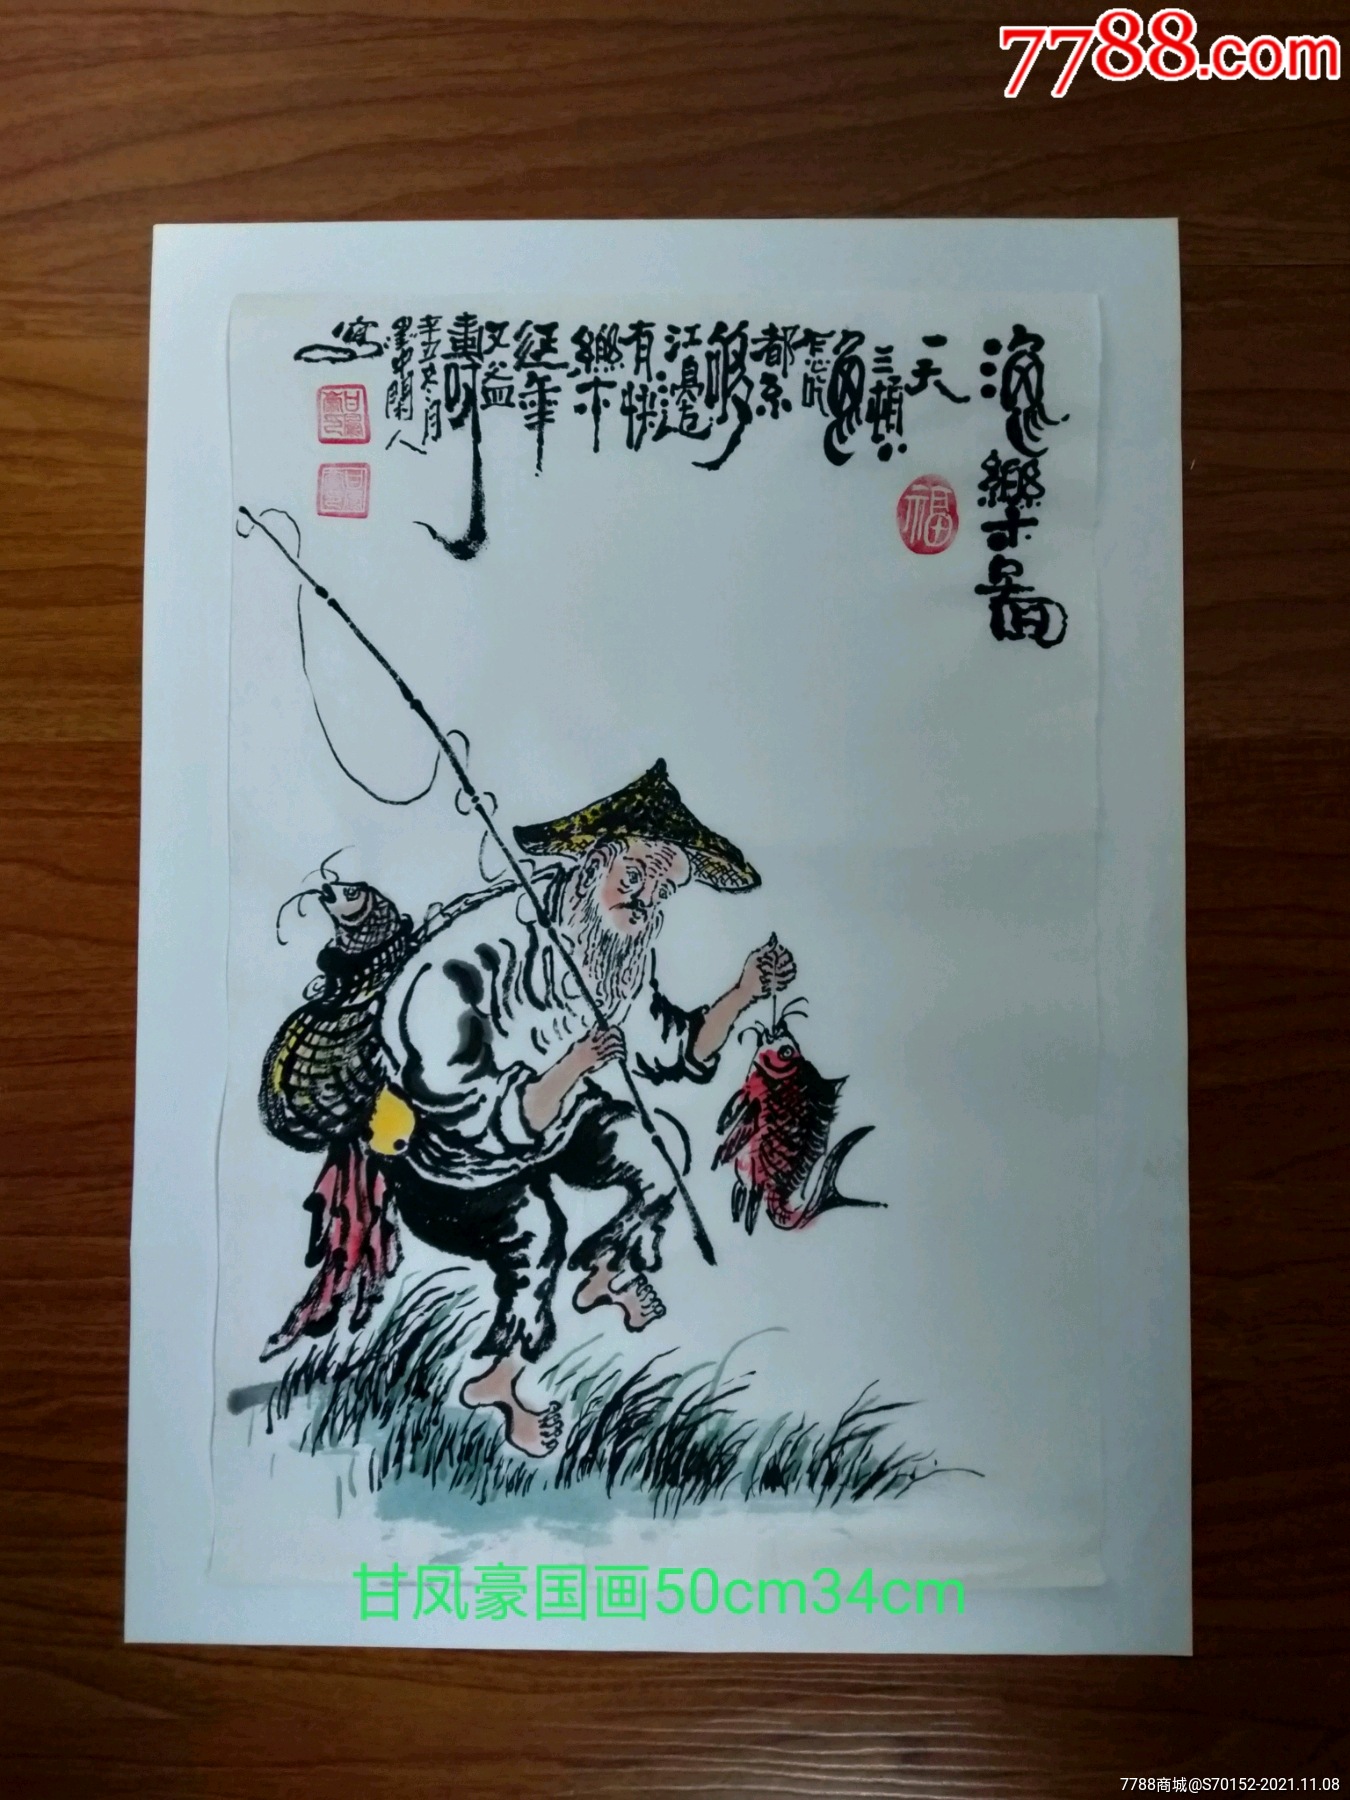 7788.com
渔樂图
一天
三頓
魚
怎吃
都不
够
江邊
有快
樂
延年
又益
壽
辛丑冬月
墨中閑人
寫
福
甘凤豪国画50cm34cm
7788商城@S70152-2021.11.08